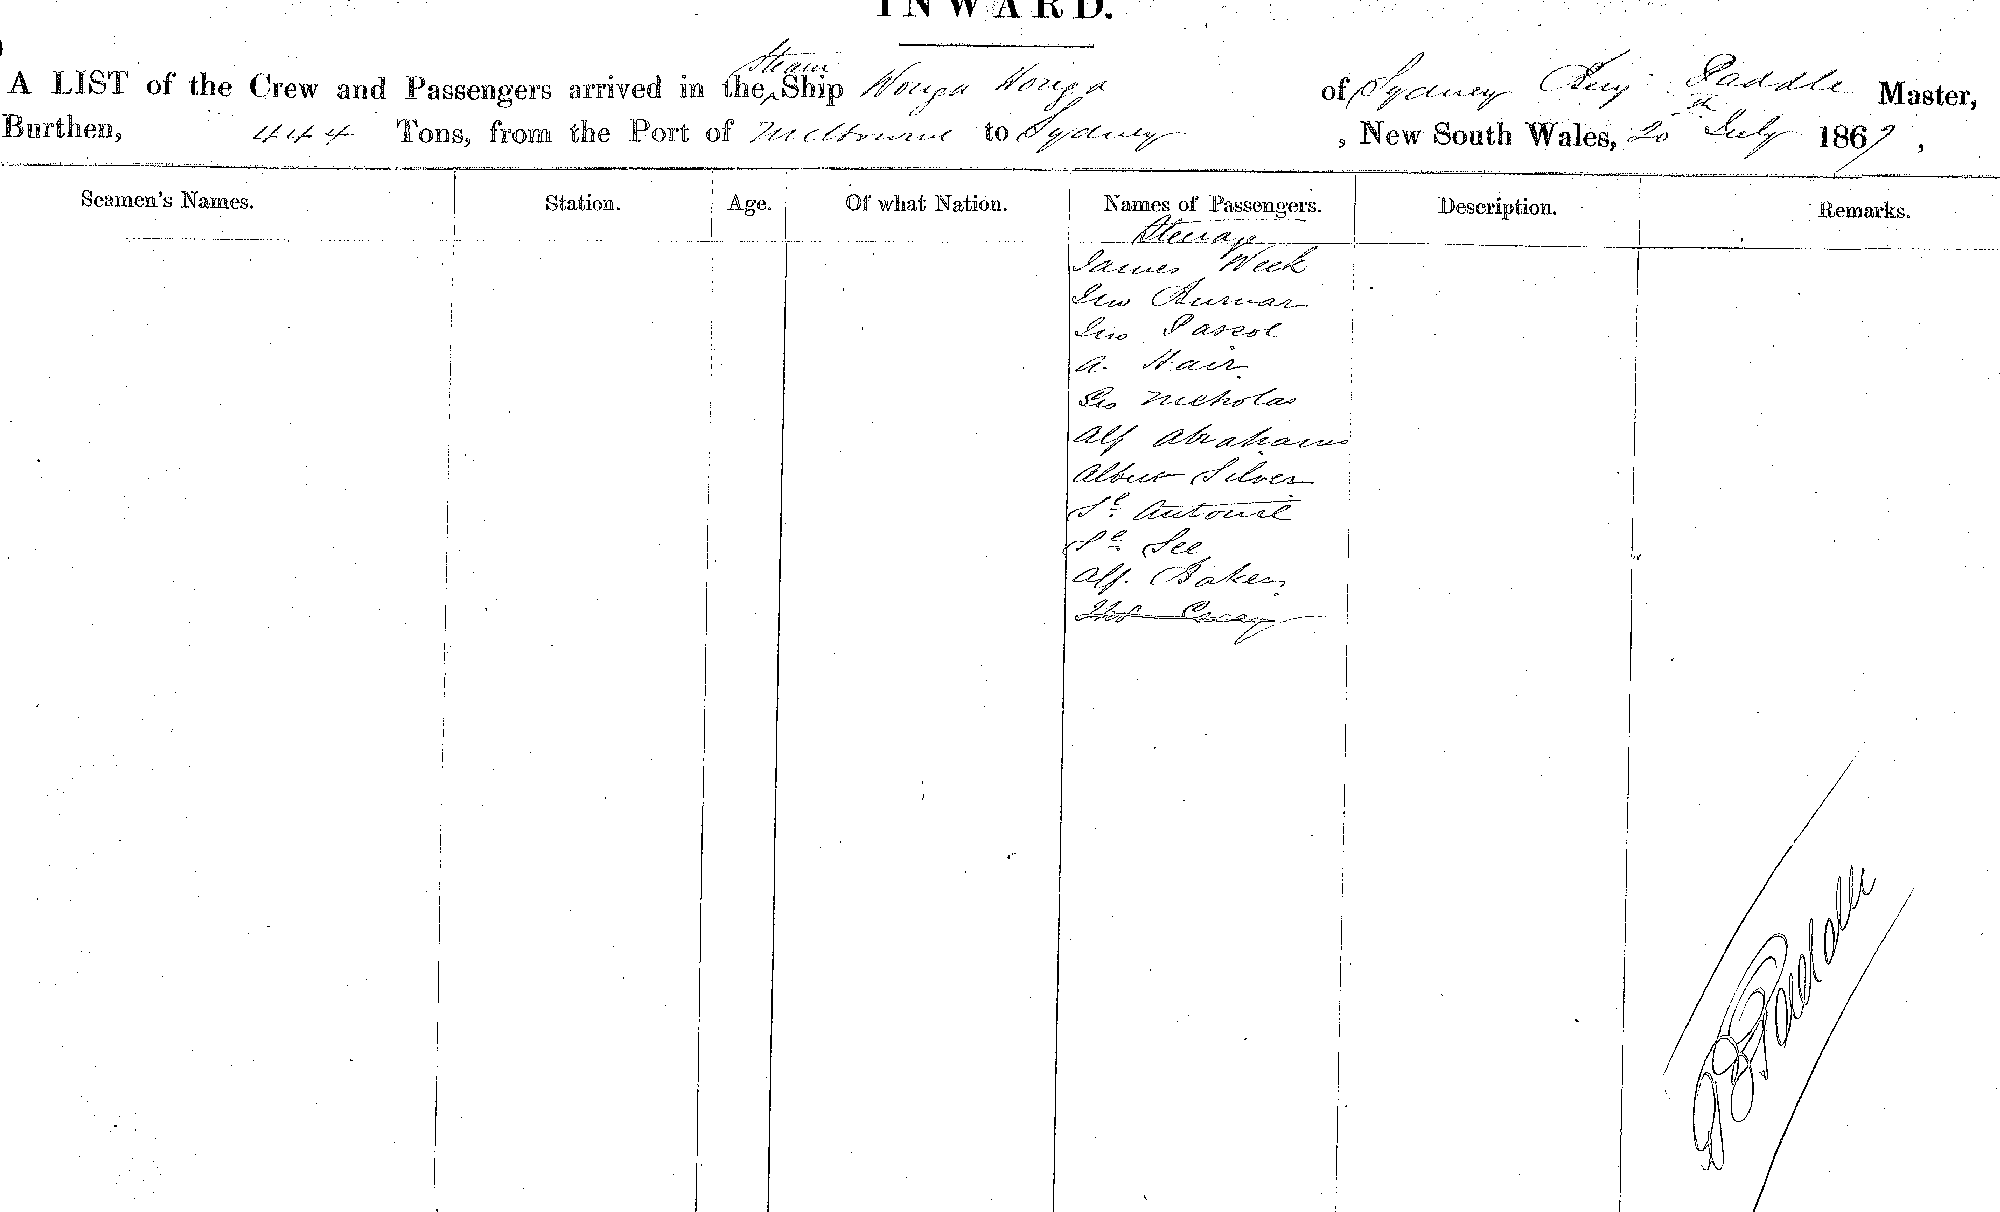 INWARD.
A LIST of the Crew and Passengers arrived in the Steam Ship Wonga Wonga of Sydney Paddle Master,
Burthen, 444 Tons, from the Port of Melbourne to Sydney , New South Wales, 20th July 1869 ,
Seamen's Names. Station. Age. Of what Nation. Names of Passengers. Description. Remarks.
Steerage
James Week
Jno
Jno Pascol
A. Hair
Geo Nicholas
Alf Abrahams
Albert Silver
Antonie
See
Alf. Baker
Thos Casey
Paddle